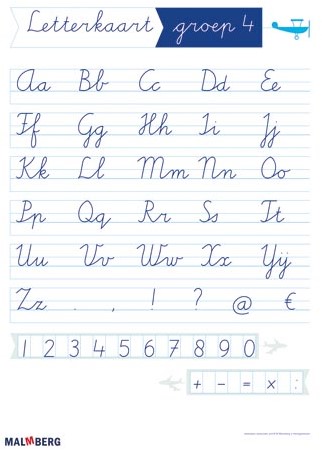 Letterkaart groep 4
Aa Bb Cc Dd Ee
Ff Gg Hh Ii Jj
Kk Ll Mm Nn Oo
Pp Qq Rr Ss Tt
Uu Vv Ww Xx Yij
Zz . , ! ? @ €
1 2 3 4 5 6 7 8 9 0
+ - = x :
MALMBERG